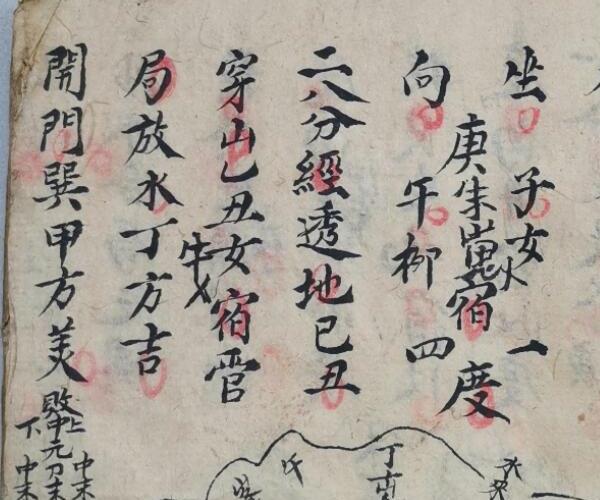 坐子女火一
庚宿度
向午柳四
二八分經透地己丑
穿山乙丑女宿管
牛
局放水丁方吉
開門巽甲方美
上
下元
中末
中末
丁
氏